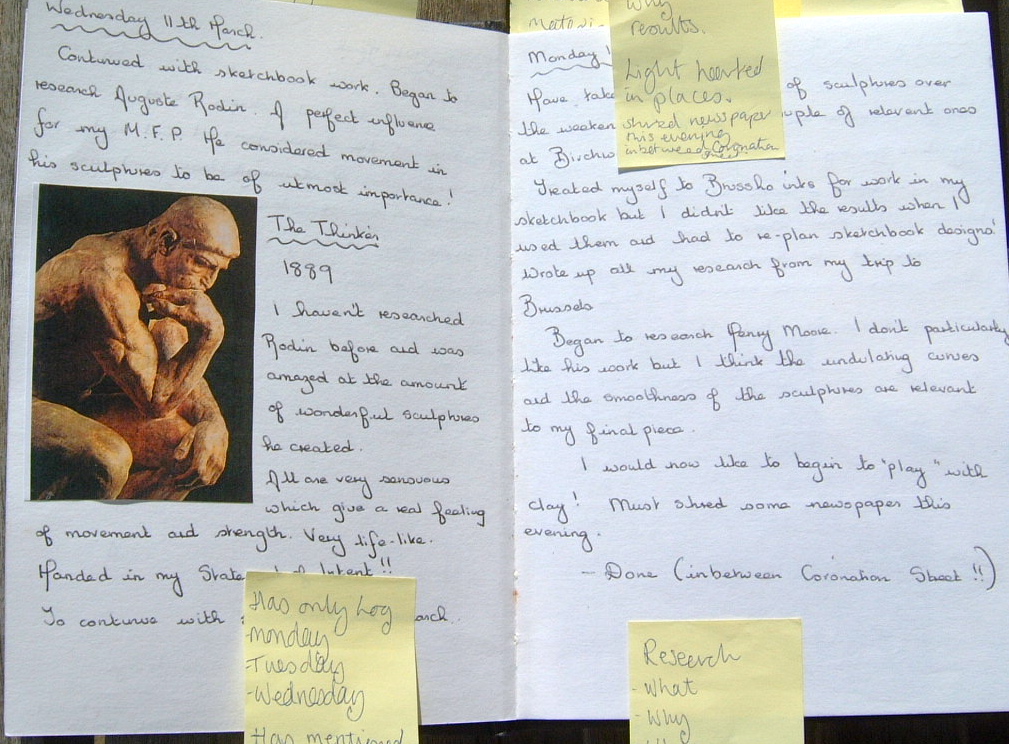 Wednesday 11th March.
Continued with sketchbook work. Began to
research Auguste Rodin. A perfect influence
for my M.F.P. He considered movement in
his sculptures to be of utmost importance!
The Thinker
1889
I haven't researched
Rodin before and was
amazed at the amount
of wonderful sculptures
he created.
All are very sensuous
which give a real feeling
of movement and strength. Very life-like.
Handed in my State Intent!!
To continue with
Has only log
-monday
-Tuesday
-Wednesday
Has mentioned
Why
results.
Light hearted
in places.
shred newspaper
this evening
inbetween Coronation
Monday
Have take of sculptures over
the weeken uple of relevent ones
at Birchw
Treated myself to Brusho inks for work in my
sketchbook but I didn't like the results when I
used them and had to re-plan sketchbook designs!
Wrote up all my research from my trip to
Brussels
Began to research Henry Moore. I don't particularly
like his work but I think the undulating curves
and the smoothness of the sculptures are relevant
to my final piece.
I would now like to begin to "play" with
clay! Must shred some newspaper this
evening.
- Done (inbetween Coronation Street!!)
Research
- What
- Why